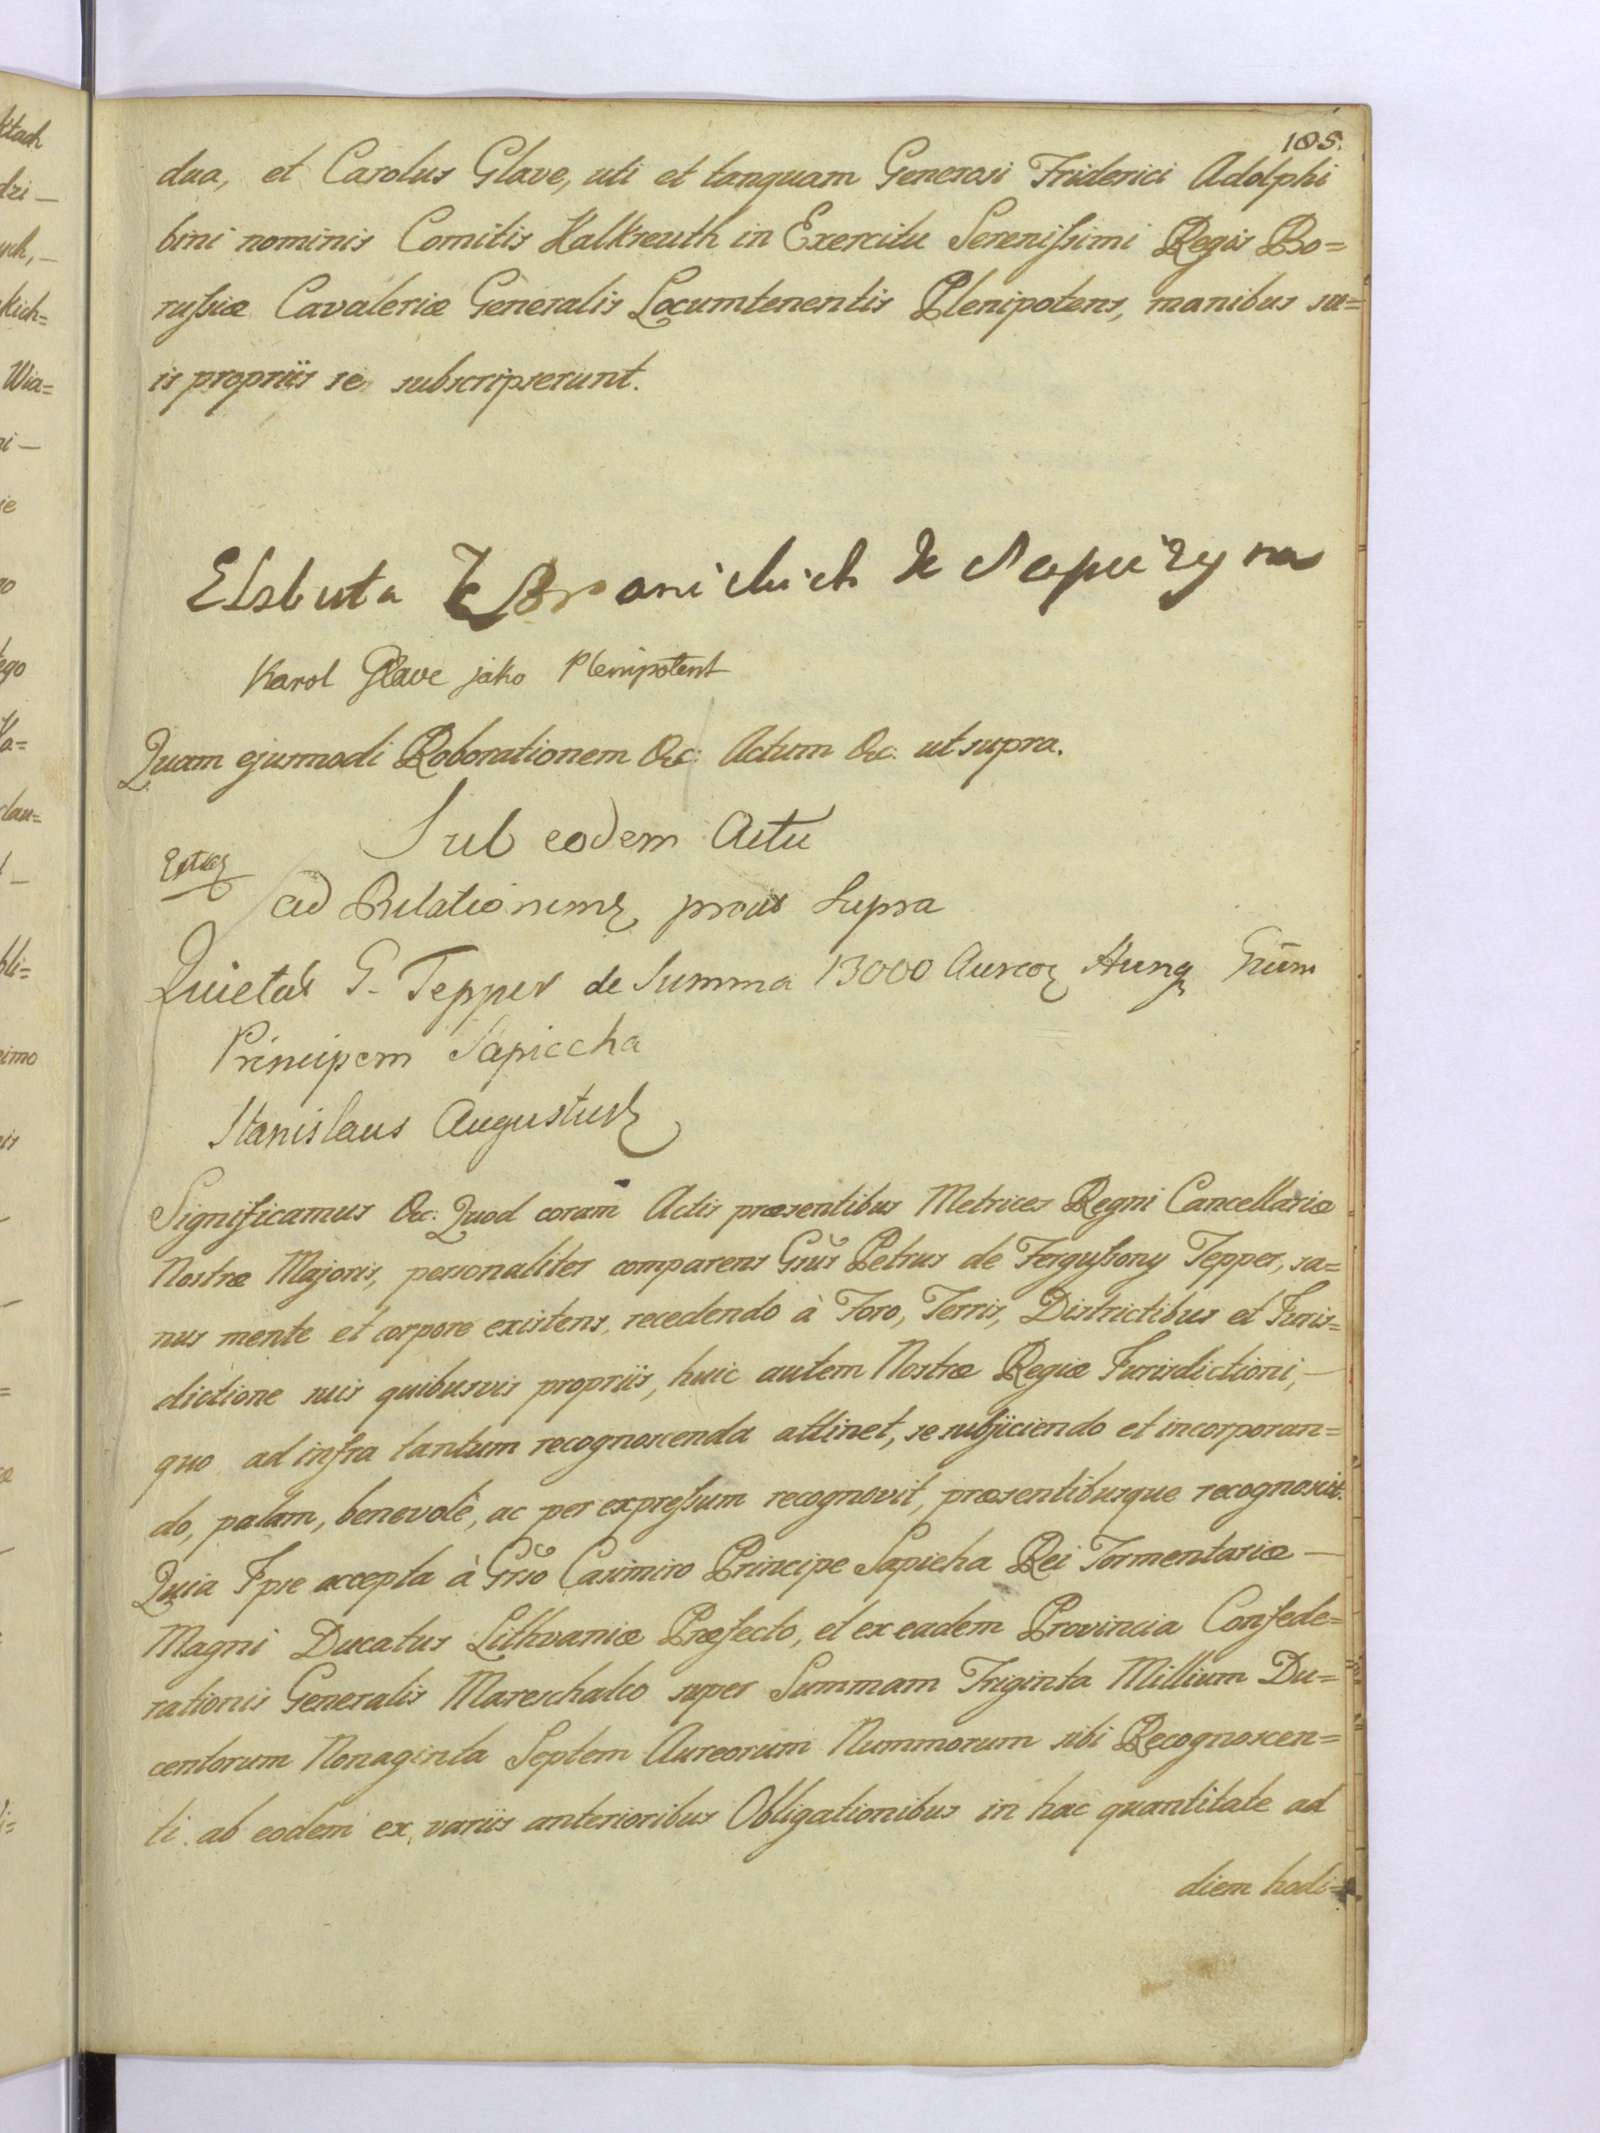 185.
dua, et Carolus Glave, uti et tanquam Generosi Friderici Adolphi
bini nominis Comitis Kalkreuth in Exercitu Serenissimi Regis Bo=
russiæ Cavaleriæ Generalis Locumtenentis Plenipotens, manibus su=
is propriis se subscripserunt.
Elzbieta z Branickich Xe Sapiezyna
Karol Glave jako Plenipotent
Quam ejusmodi Roborationem &c: Actum &c: ut supra.
Sub eodem Actu
ad Relationem prout supra
Quietat G. Tepper de Summa 13000 Aureor Hung Grūm
Principem Sapieha
Stanislaus Augustus
Significamus &c: Quod coram Actis præsentibus Metrices Regni Cancellariæ
Nostræ Majoris, personaliter comparens Grūs Petrus de Fergussony Tepper, sa=
nus mente et corpore existens, recedendo à Foro, Terris, Districtibus et Juris=
dictione suis quibusvis propriis, huic autem Nostræ Regiæ Jurisdictioni, —
quo ad infra tantum recognoscenda attinet, se subjiciendo et incorporan=
do, palam, benevolê, ac per expressum recognovit, præsentibusque recognoscit.
Quia Ipse accepta à Grso Casimiro Principe Sapieha Rei Tormentariæ —
Magni Ducatus Lithvaniæ Præfecto, et ex eadem Provincia Confede=
rationis Generalis Mareschalco super Summam Triginta Millium Du=
centorum Nonaginta Septem Aureorum Nummorum sibi Recognoscen=
ti ab eodem ex variis anterioribus Obligationibus in hac quantitate ad
diem hodi=